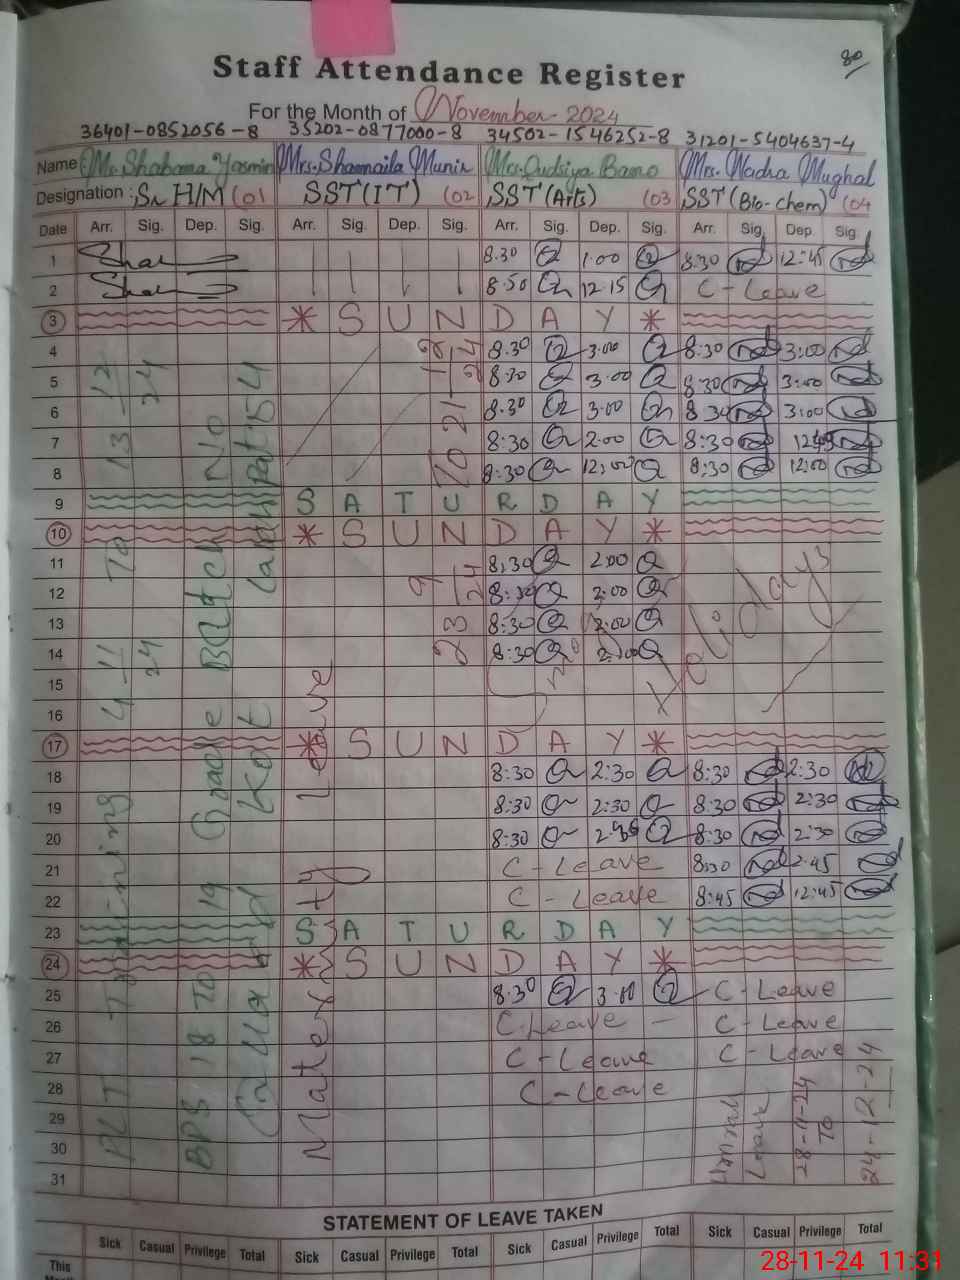 80
Staff Attendance Register
For the Month of November - 2024
36401-0852056-8 35202-0877000-8 34502-1546252-8 31201-5404637-4
Name Ms. Shabana Yasmin Mrs. Shamaila Munir Mrs. Qudsiya Bano Mrs. Nadra Mughal
Designation : Sr HM (01 SST (IT) (02 SST (Arts) (03 SST (Bio-chem) (04
Date Arr. Sig. Dep. Sig. Arr. Sig. Dep. Sig. Arr. Sig. Dep. Sig. Arr. Sig. Dep. Sig.
1 8.30 1.00 8:30 12:45
2 8.50 12.15 C - Leave
3 * S U N D A Y *
4 8.30 3.00 8:30 3:00
5 8:30 3.00 8:30 3:00
6 8.30 3.00 8:30 3:00
7 8:30 2.00 8:30
8 8:30 12:00 8:30 12:00
9 S A T U R D A Y
10 * S U N D A Y *
11 8:30 2:00
12 8:30 2:00
13 8:30 2:00
14 8:30 2:00
15
16
17 * S U N D A Y *
18 8:30 2:30 8:30 2:30
19 8:30 2:30 8:30 2:30
20 8:30 8:30 2:30
21 C - Leave 8:30 2.45
22 C - Leave 8:45 12:45
23 S A T U R D A Y
24 * S U N D A Y *
25 8:30 3.00 C - Leave
26 C. Leave - C - Leave
27 C - Leave C - Leave
28 C - Leave
29
30
31
PLT Training 4-11-24 To 13-12-24
BPS 18 To 19 Grade Batch No
Lakhpat 154
Maternity Leave
9-23-24 To 21-12-24
Holidays
Leave
28-11-24
To
24-12-24
STATEMENT OF LEAVE TAKEN
Sick Casual Privilege Total Sick Casual Privilege Total Sick Casual Privilege Total Sick Casual Privilege Total
This
28-11-24 11:31